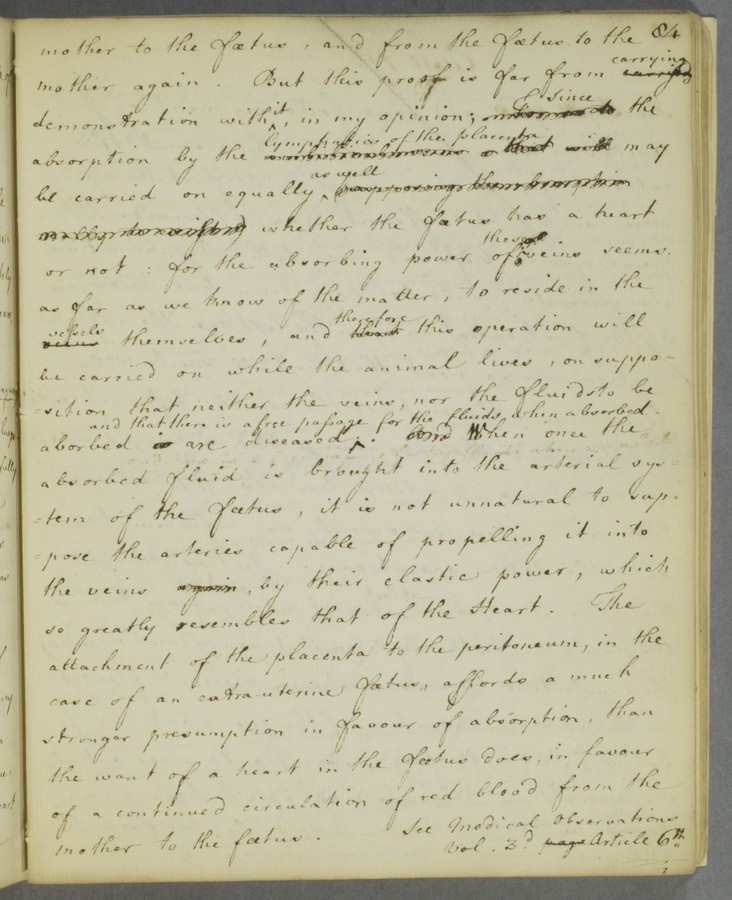 84
mother to the fœtus, and from the fœtus to the
carrying
mother again. But this proof is far from carrying
it since
demonstration with, in my opinion; the
lymphatics of the placenta
absorption by the that will may
as well
be carried on equally, (supposing
whether the fœtus has a heart
these
or not: for the absorbing power of veins seems,
as far as we know of the matter, to reside in the
vessels therefore
veins themselves, and this operation will
be carried on while the animal lives, on suppo-
-sition that neither the veins, nor the fluids to be
and that there is a free passage for the fluids, when absorbed.
aborbed are diseased. And When once the
absorbed fluid is brought into the arterial sys=
=tem of the fœtus, it is not unnatural to sup=
=pose the arteries capable of propelling it into
the veins again, by their elastic power, which
so greatly resembles that of the Heart. The
attachment of the placenta to the peritoneum, in the
case of an extra-uterine fœtus, affords a much
stronger presumption in favour of absorption, than
the want of a heart in the fœtus does, in favour
of a continued circulation of red blood from the
mother to the fœtus. See Medical Observations
Vol. 3d page Article 6th